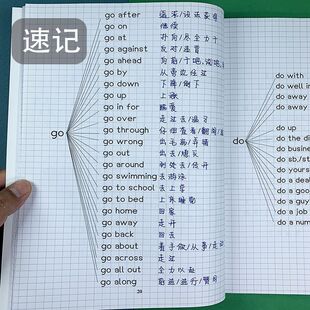 速记
go
go after 追求/设法要得
go on 继续
go at 扑向/尽全力干
go against 反对/违背
go ahead 向前/干吧,说吧
go by 从旁边经过
go down 下降/倒下
go up 上涨
go in for 酷爱
go over 走过去/温习
go through 仔细查看/翻阅
go wrong 出毛病/弄错
go out 出去/熄灭
go around 到处去/传开
go swimming 去游泳
go to school 去上学
go to bed 上床睡觉
go home 回家
go away 走开
go back 回去
go about 着手做/从事/走动
go across 走过
go all out 全力以赴
go along 前进/进行/赞同
do
do with
do well in
do away
do up
do the di
do busine
do sb/st
do yours
do a dea
do a goo
do a job
do a num